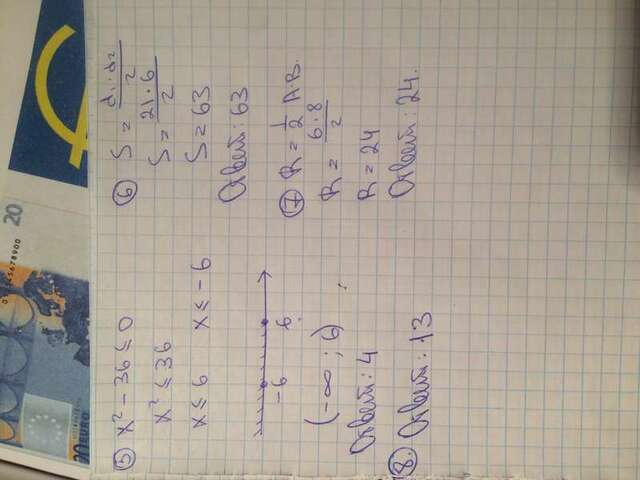 012345678900
20
20 EURO
5 x² - 36 ≤ 0
x² ≤ 36
x ≤ 6 x ≤ -6
-6 6
(-∞; 6)
Ответ: 4
8. Ответ: 13
6 S = d₁·d₂/2
S = 21·6/2
S = 63
Ответ: 63
7 R = 1/2 A·B.
R = 6·8/2
R = 24
Ответ: 24.